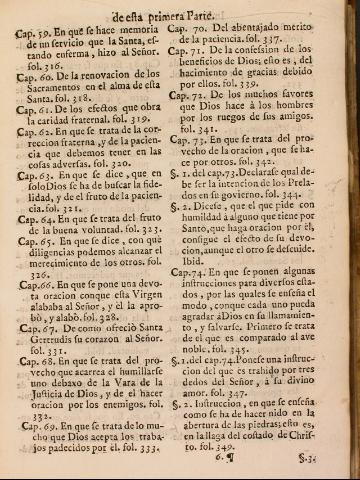 de esta primera Parte.
Cap. 59. En que se hace memoria
de un servicio que la Santa, es-
tando enferma, hizo al Señor.
fol. 316.
Cap. 60. De la renovacion de los
Sacramentos en el alma de esta
Santa. fol. 318.
Cap. 61. De los efectos que obra
la caridad fraternal. fol. 319.
Cap. 62. En que se trata de la cor-
reccion fraterna, y de la pacien-
cia que debemos tener en las
cosas adversas. fol. 320.
Cap. 63. En que se dice, que en
solo Dios se ha de buscar la fide-
lidad, y de el fruto de la pacien-
cia. fol. 321.
Cap. 64. En que se trata del fruto
de la buena voluntad. fol. 323.
Cap. 65. En que se dice, con què
diligencias podemos alcanzar el
merecimiento de los otros. fol.
326.
Cap. 66. En que se pone una devo-
ta oracion conque esta Virgen
alababa al Señor, y èl la apro-
bò, y alabò. fol. 328.
Cap. 67. De como ofreciò Santa
Gertrudis su corazon al Señor.
fol. 331.
Cap. 68. En que se trata del pro-
vecho que acarrea el humillarse
uno debaxo de la Vara de la
Justicia de Dios, y de el hacer
oracion por los enemigos. fol.
332.
Cap. 69. En que se trata de lo mu-
cho que Dios acepta los traba-
jos padecidos por èl. fol. 333.
Cap. 70. Del abentajado merito
de la paciencia. fol. 337.
Cap. 71. De la confession de los
beneficios de Dios; esto es, del
hacimiento de gracias debido
por ellos. fol. 339.
Cap. 72. De los muchos favores
que Dios hace à los hombres
por los ruegos de sus amigos.
fol. 341.
Cap. 73. En que se trata del pro-
vecho de la oracion, que se ha-
ce por otros. fol. 342.
§. 1. del cap. 73. Declarase qual de-
be ser la intencion de los Prela-
dos en su govierno. fol. 344.
§. 2. Dicese, que el que pide con
humildad à alguno que tiene por
Santo, que haga oracion por èl,
consigue el efecto de su devo-
cion, aunque el otro se descuide.
Ibid.
Cap. 74. En que se ponen algunas
instrucciones para diversos esta-
dos, por las quales se enseña el
modo, conque cada uno pueda
agradar à Dios en su llamamien-
to, y salvarse. Primero se trata
de el que es comparado al ave
noble. fol. 345.
§. 1. del cap. 74. Ponese una instruc-
cion del que es trahido por tres
dedos del Señor, à su divino
amor. fol. 347.
§. 2. Instruccion, en que se enseña
como se ha de hacer nido en la
abertura de las piedras; esto es,
en la llaga del costado de Chris-
to. fol. 349.
6. ¶
§. 3.